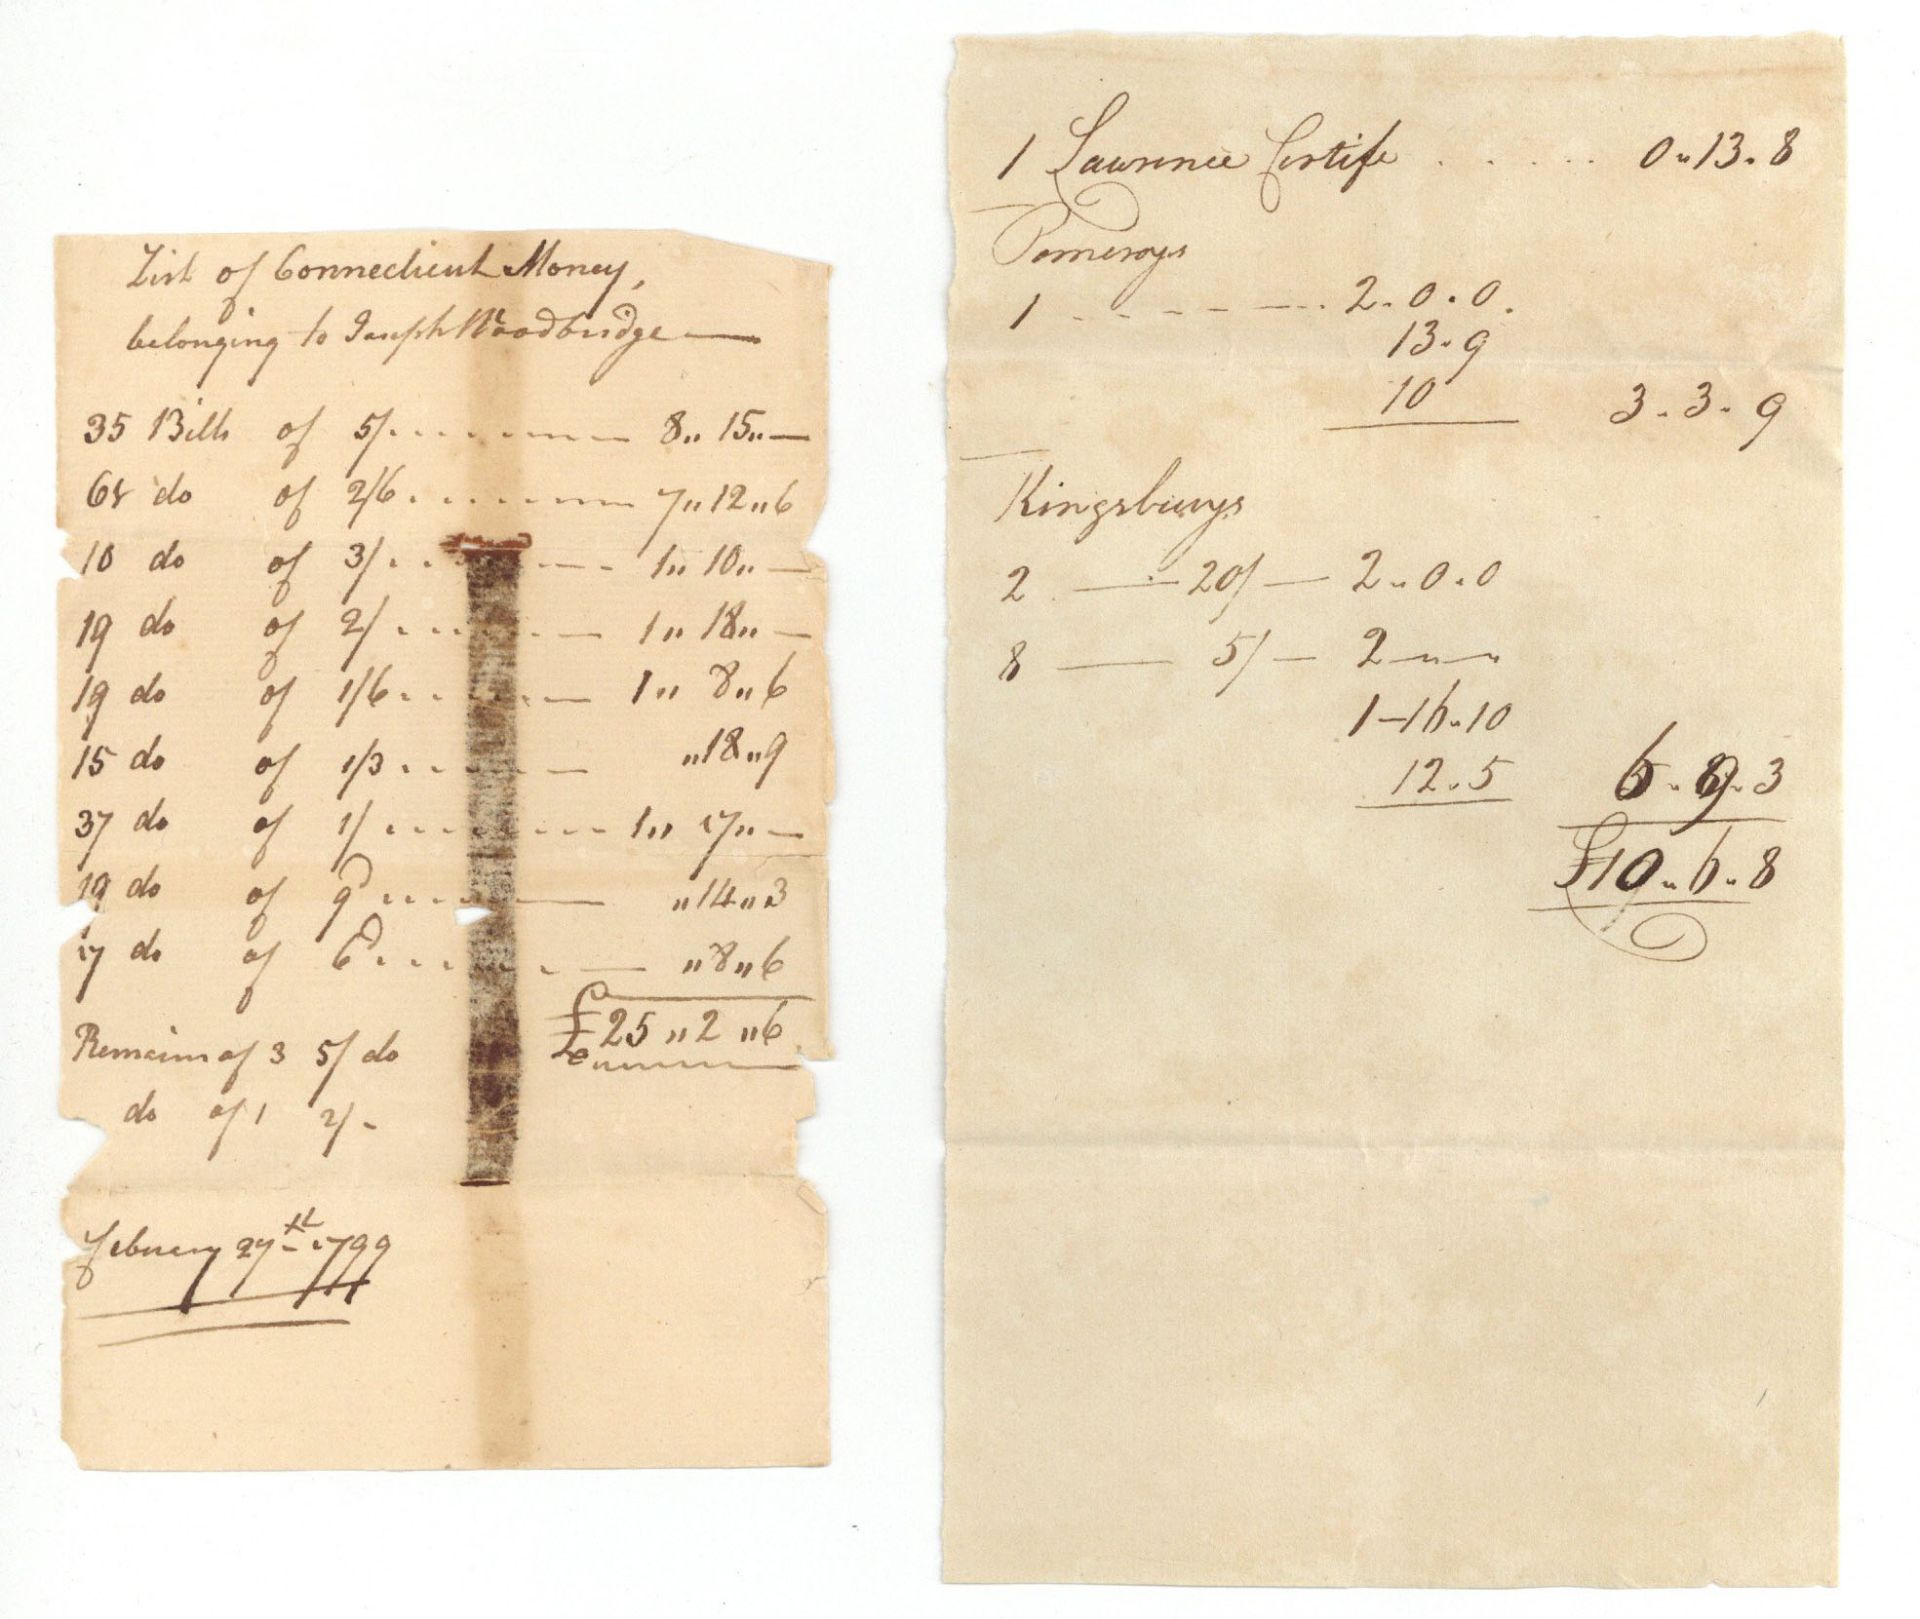 List of Connecticut Money,
belonging to Joseph Woodbridge —
35 Bills of 5/ 8" 15" —
61 do of 2/6 7" 12" 6
10 do of 3/ 1" 10" —
19 do of 2/ 1" 18" —
19 do of 1/6 1" 8" 6
15 do of 1/3 " 18" 9
37 do of 1/ 1" 17" —
19 do of 9d " 14" 3
17 do of 6d " 8" 6
£25 " 2 " 6
Remains of 3 5/ do
do of 1 2/-
February 27th 1799
1 Lawrence Certife 0 " 13 . 8
Pomeroys
1 2 . 0 . 0 .
13 . 9
10 3 . 3 . 9
Kingsburys
2 — 20/ — 2 " 0 . 0
8 — 5/ — 2 — " — "
1 — 16 . 10
12 . 5 6 . 9 . 3
£10 " 6 " 8